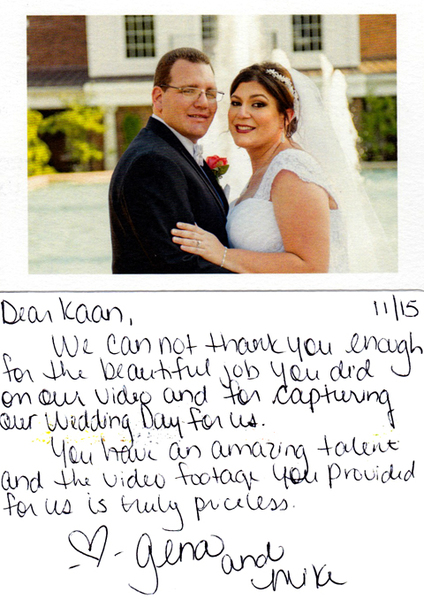 Dear Kaan, 11/15
We can not thank you enough
for the beautiful job you did
on our video and for capturing
our Wedding Day for us.
You have an amazing talent
and the video footage you provided
for us is truly priceless.
-♡- Gena and
Mike